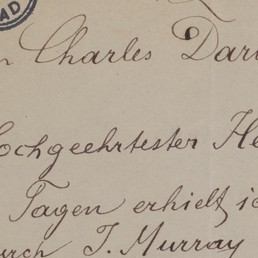 AD
n Charles Dar
ochgeehrtester He
Tagen erhielt ic
urch J. Murray